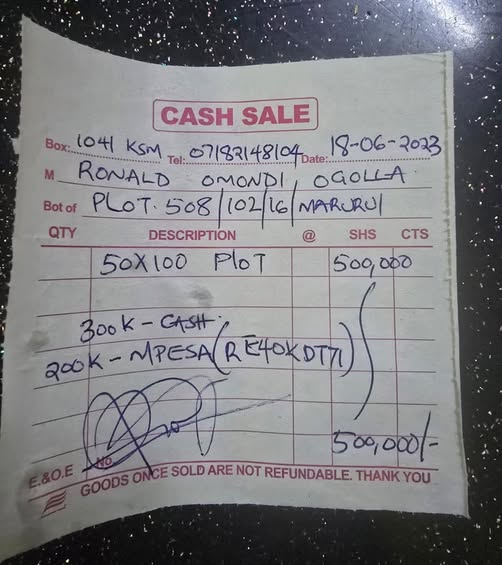 CASH SALE
Box: 1041 KSM Tel: 07182148104 Date: 18-06-2023
M RONALD OMONDI OGOLLA
Bot of PLOT. 508/102/16/MARURUI
QTY DESCRIPTION @ SHS CTS
50X100 PLOT 500,000
300K - CASH.
200K - MPESA (RE40KDT71)
500,000/-
No
E.&O.E
GOODS ONCE SOLD ARE NOT REFUNDABLE. THANK YOU